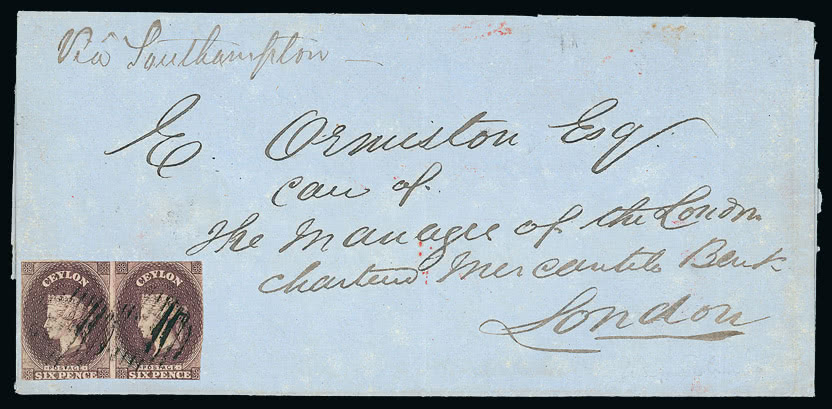 Via Southampton
E. Ormiston Esq.
care of
The Manager of the London
Chartered Mercantile Bank
London
CEYLON CEYLON
POSTAGE POSTAGE
SIX PENCE SIX PENCE